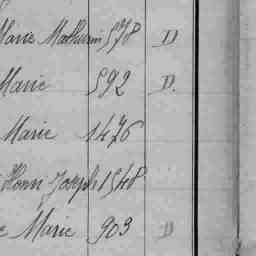 Marie Mathurin 578 D
Marie 592 D.
Marie 1476
Henri Joseph 1548
e Marie 903 D